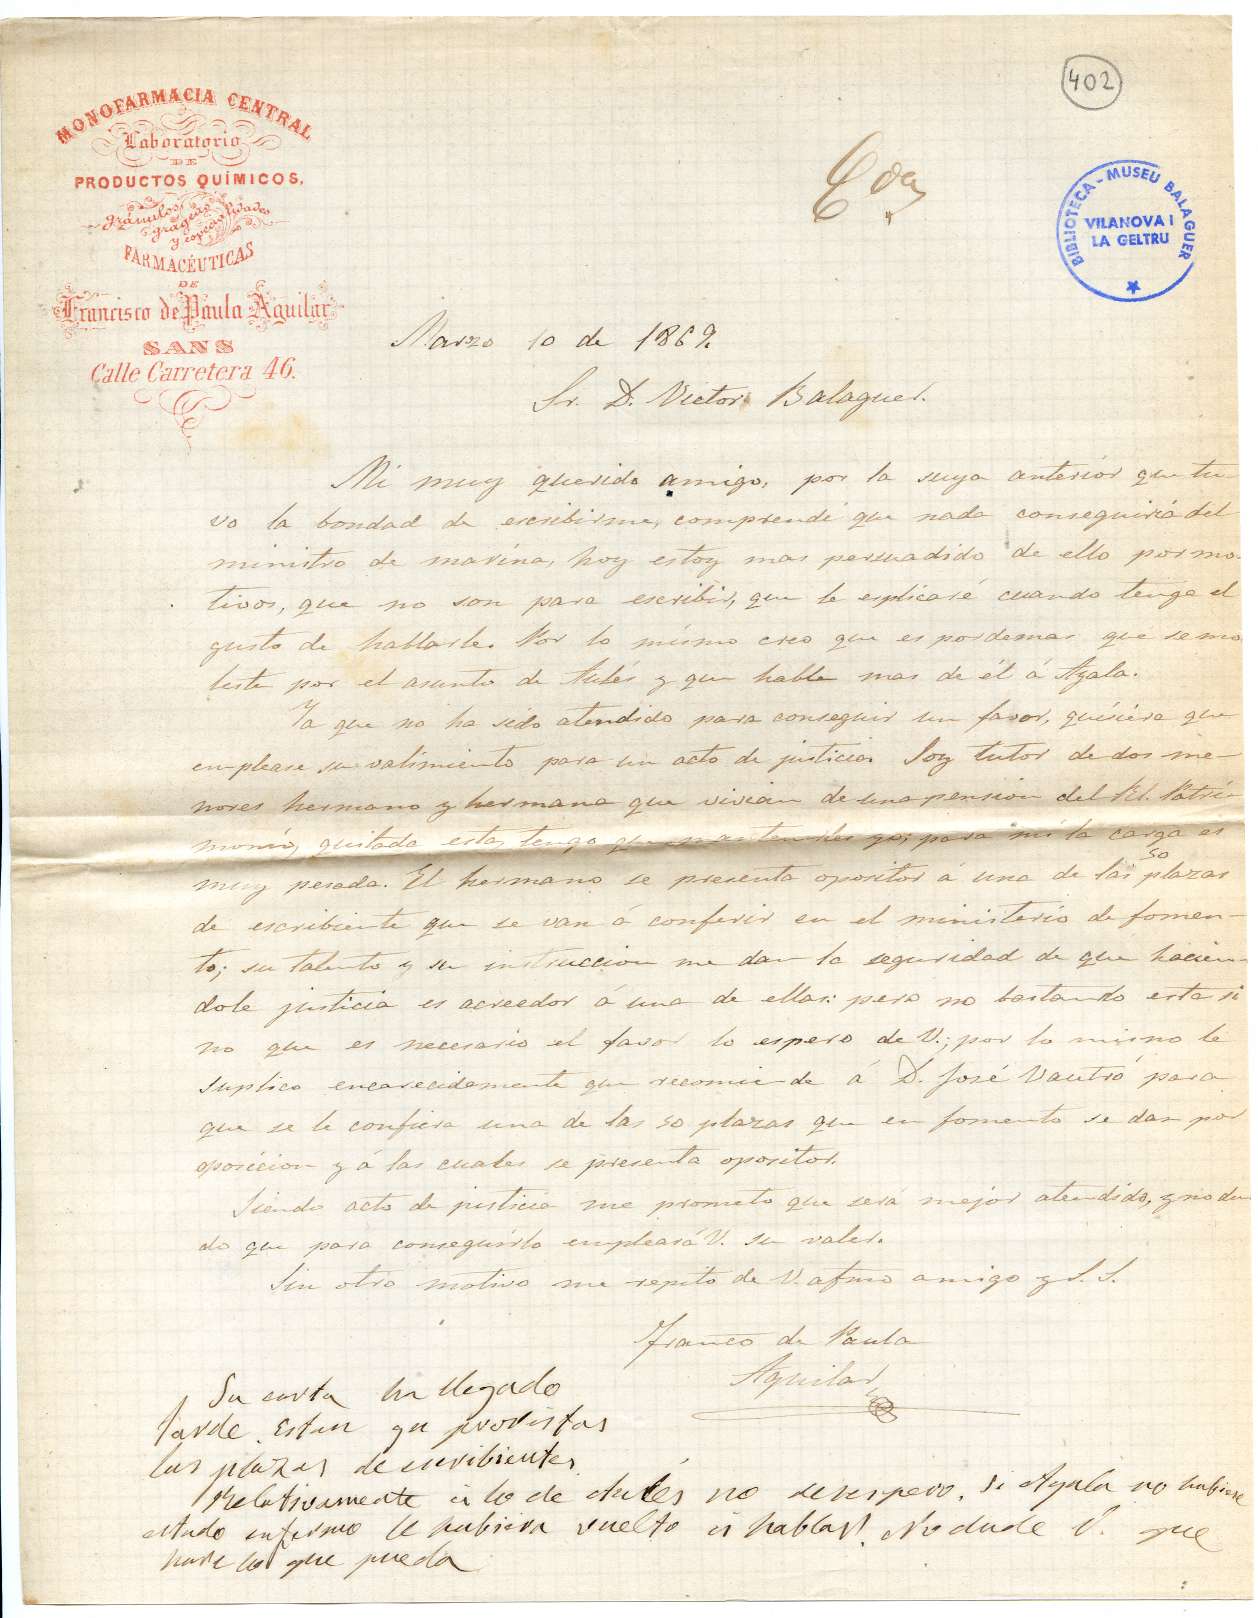 402
MONOFARMACIA CENTRAL
Laboratorio
DE
PRODUCTOS QUÍMICOS,
gránulos,
grageas
y especialidades
FARMACÉUTICAS
DE
Francisco de Paula Aguilar
SANS
Calle Carretera 46.
BIBLIOTECA - MUSEU BALAGUER
VILANOVA I
LA GELTRU
Marzo 10 de 1869.
Sr. D. Victor Balaguer.
Mi muy querido amigo, por la suya anterior que tu-
vo la bondad de escribirme, comprendi que nada conseguiría del
ministro de marina, hoy estoy mas persuadido de ello por mo-
tivos, que no son para escribir, que le esplicaré cuando tenga el
gusto de hablarle. Por lo mismo creo que es por demas que se mo
leste por el asunto de Aulés y que hable mas de él á Ayala.
Ya que no ha sido atendido para conseguir un favor, quisiera que
emplease su valimiento para un acto de justicia. Soy tutor de dos me-
nores hermano y hermana que vivian de una pension del Rl. Patri-
monio, quitada esta, tengo que mantenerles yo; para mí la carga es
muy pesada. El hermano se presenta opositor á una de las 50 plazas
de escribiente que se van á conferir en el ministerio de fomen-
to; su talento y su instruccion me dan la seguridad de que hacien-
dole justicia es acreedor á una de ellas: pero no bastando esta si
no que es necesario el favor lo espero de V.; por lo mismo le
suplico encarecidamente que recomiende á D. José Vautró para
que se le confiera una de las 50 plazas que en fomento se dan por
oposicion y á las cuales se presenta opositor.
Siendo acto de justicia me prometo que será mejor atendido, y no du-
do que para conseguirlo empleará V. su valer.
Sin otro motivo me repito de V. afmo amigo y S. S.
Franco de Paula
Aguilar
Su carta ha llegado
tarde. Estan ya provistas
las plazas de escribientes
Relativamente á lo de Aulés no desespero. Si Ayala no hubiese
estado enfermo le hubiera vuelto á hablar. No dude V. que
haré lo que pueda